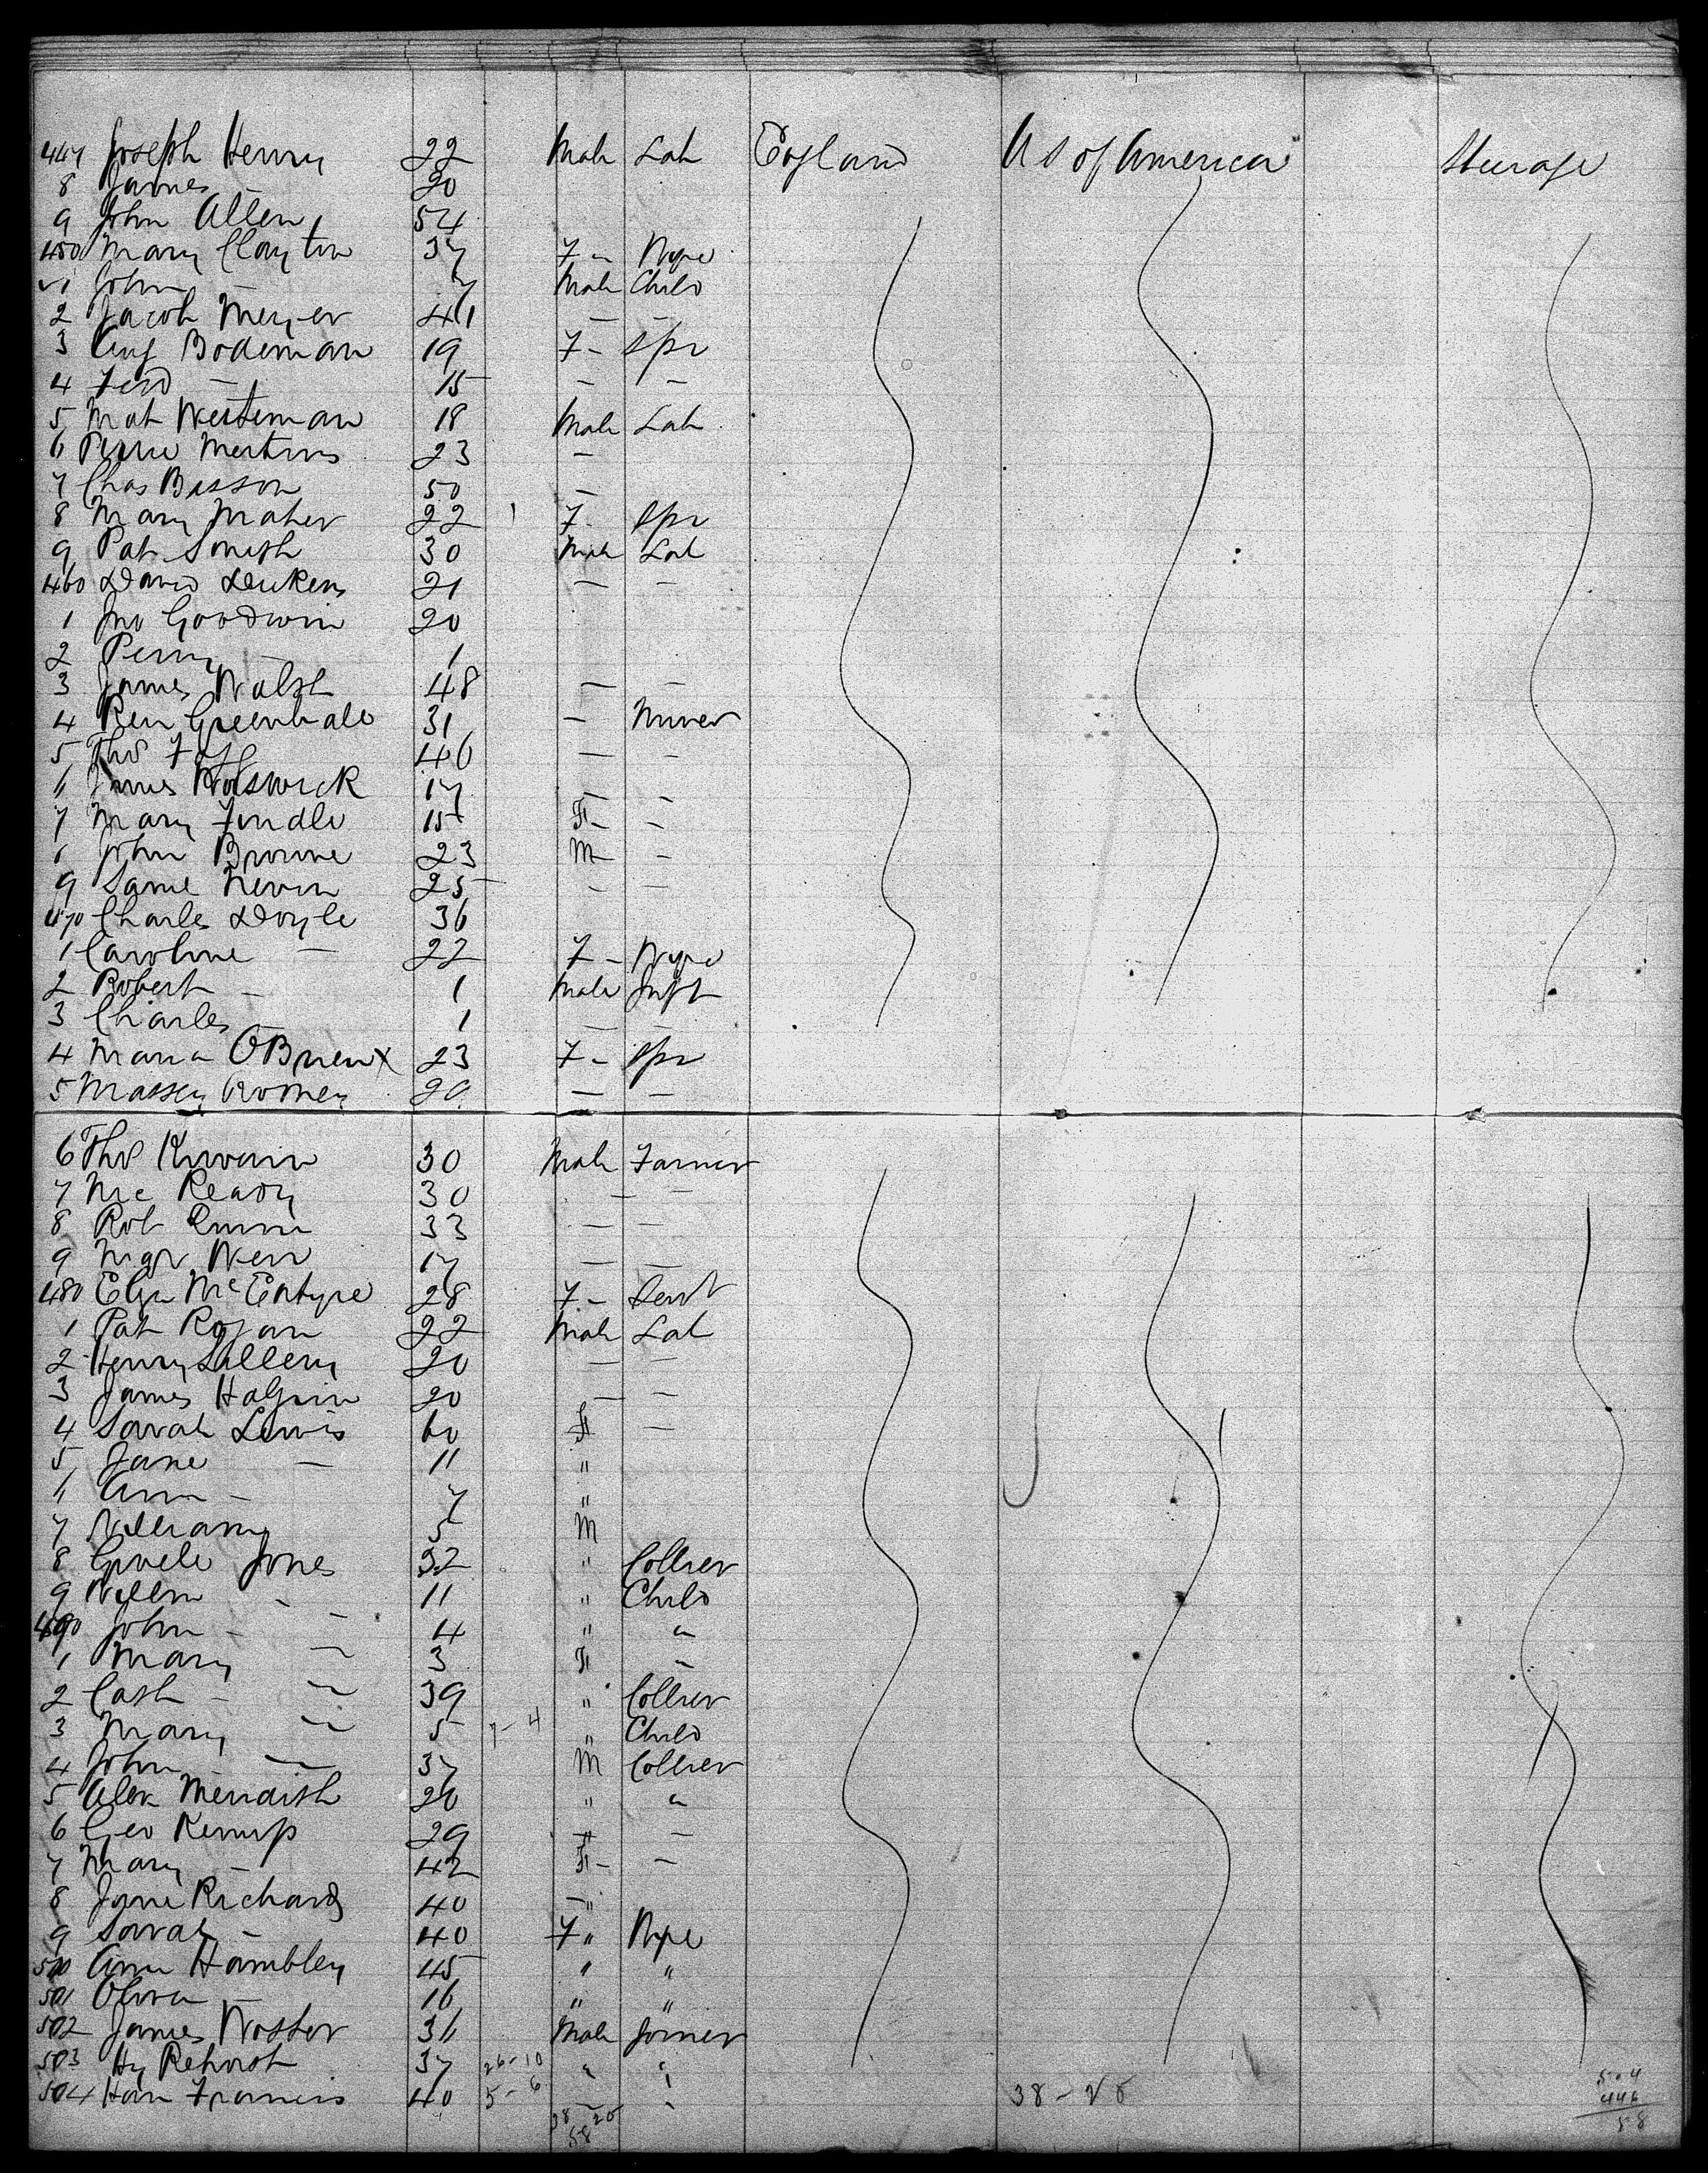 447 Joseph Henry 22 Male Lab England U S of America Steerage
8 James — 20
9 John Allen 54
450 Mary Clayton 37 F — Wife
1 John — 7 Male Child
2 Jacob Meyer 41 — —
3 Aug Bodeman 19 F — Spr
4 Ferd — 15 — —
5 Mat Westeman 18 Male Lab
6 Pierre Mertins 23 —
7 Chas Bisson 50 —
8 Mary Maher 22 F — Spr
9 Pat Smith 30 Male Lab
460 David Deukens 21 — —
1 Jno Goodwin 20
2 Perry — 1
3 James Walsh 48 — —
4 Ben Greenhale 31 — Miner
5 Tho 46 — —
6 James 17 — —
7 Mary Findle 15 F — —
8 John Browne 23 M —
9 Nevin 25 — —
470 Charles Doyle 36
1 Caroline — 22 F — Wife
2 Robert — 1 Male Inft
3 Charles — 1 — —
4 Maria OBrien x 23 F — Spr
5 Massey Romey 20 — —
6 Tho Kirwain 30 Male Farmer
7 Mc Ready 30 — —
8 Rob Quinn 33 — —
9 Weir 17 — —
480 Eliza McEntyre 28 F — Servt
1 Pat Rogan 22 Male Lab
2 Henry Lallery 20 — —
3 James Halpin 20 — —
4 Sarah Lewis 60 F —
5 Jane — 11 "
6 Ann — 7 "
7 William 5 M
8 Jones 32 " Collier
9 Willm — — 11 " Child
490 John — — 4 " "
1 Mary — 3 F "
2 Cath — — 39 " Collier
3 Mary — 5 7-4 " Child
4 John — — 37 M Collier
5 Alex Meridith 20 " "
6 Geo Kemp 29 " —
7 Mary — 42 F — —
8 Jane Richards 40 — "
9 Sarah — 40 F " Wife
500 Ann Hambley 45 " "
501 Oliva — 16 " "
502 James Woster 31 Male Joiner
503 Hy Rehorst 37 26-10 " "
504 Han Francis 40 5-6 — " 38-20 504
38 20 446
58 58